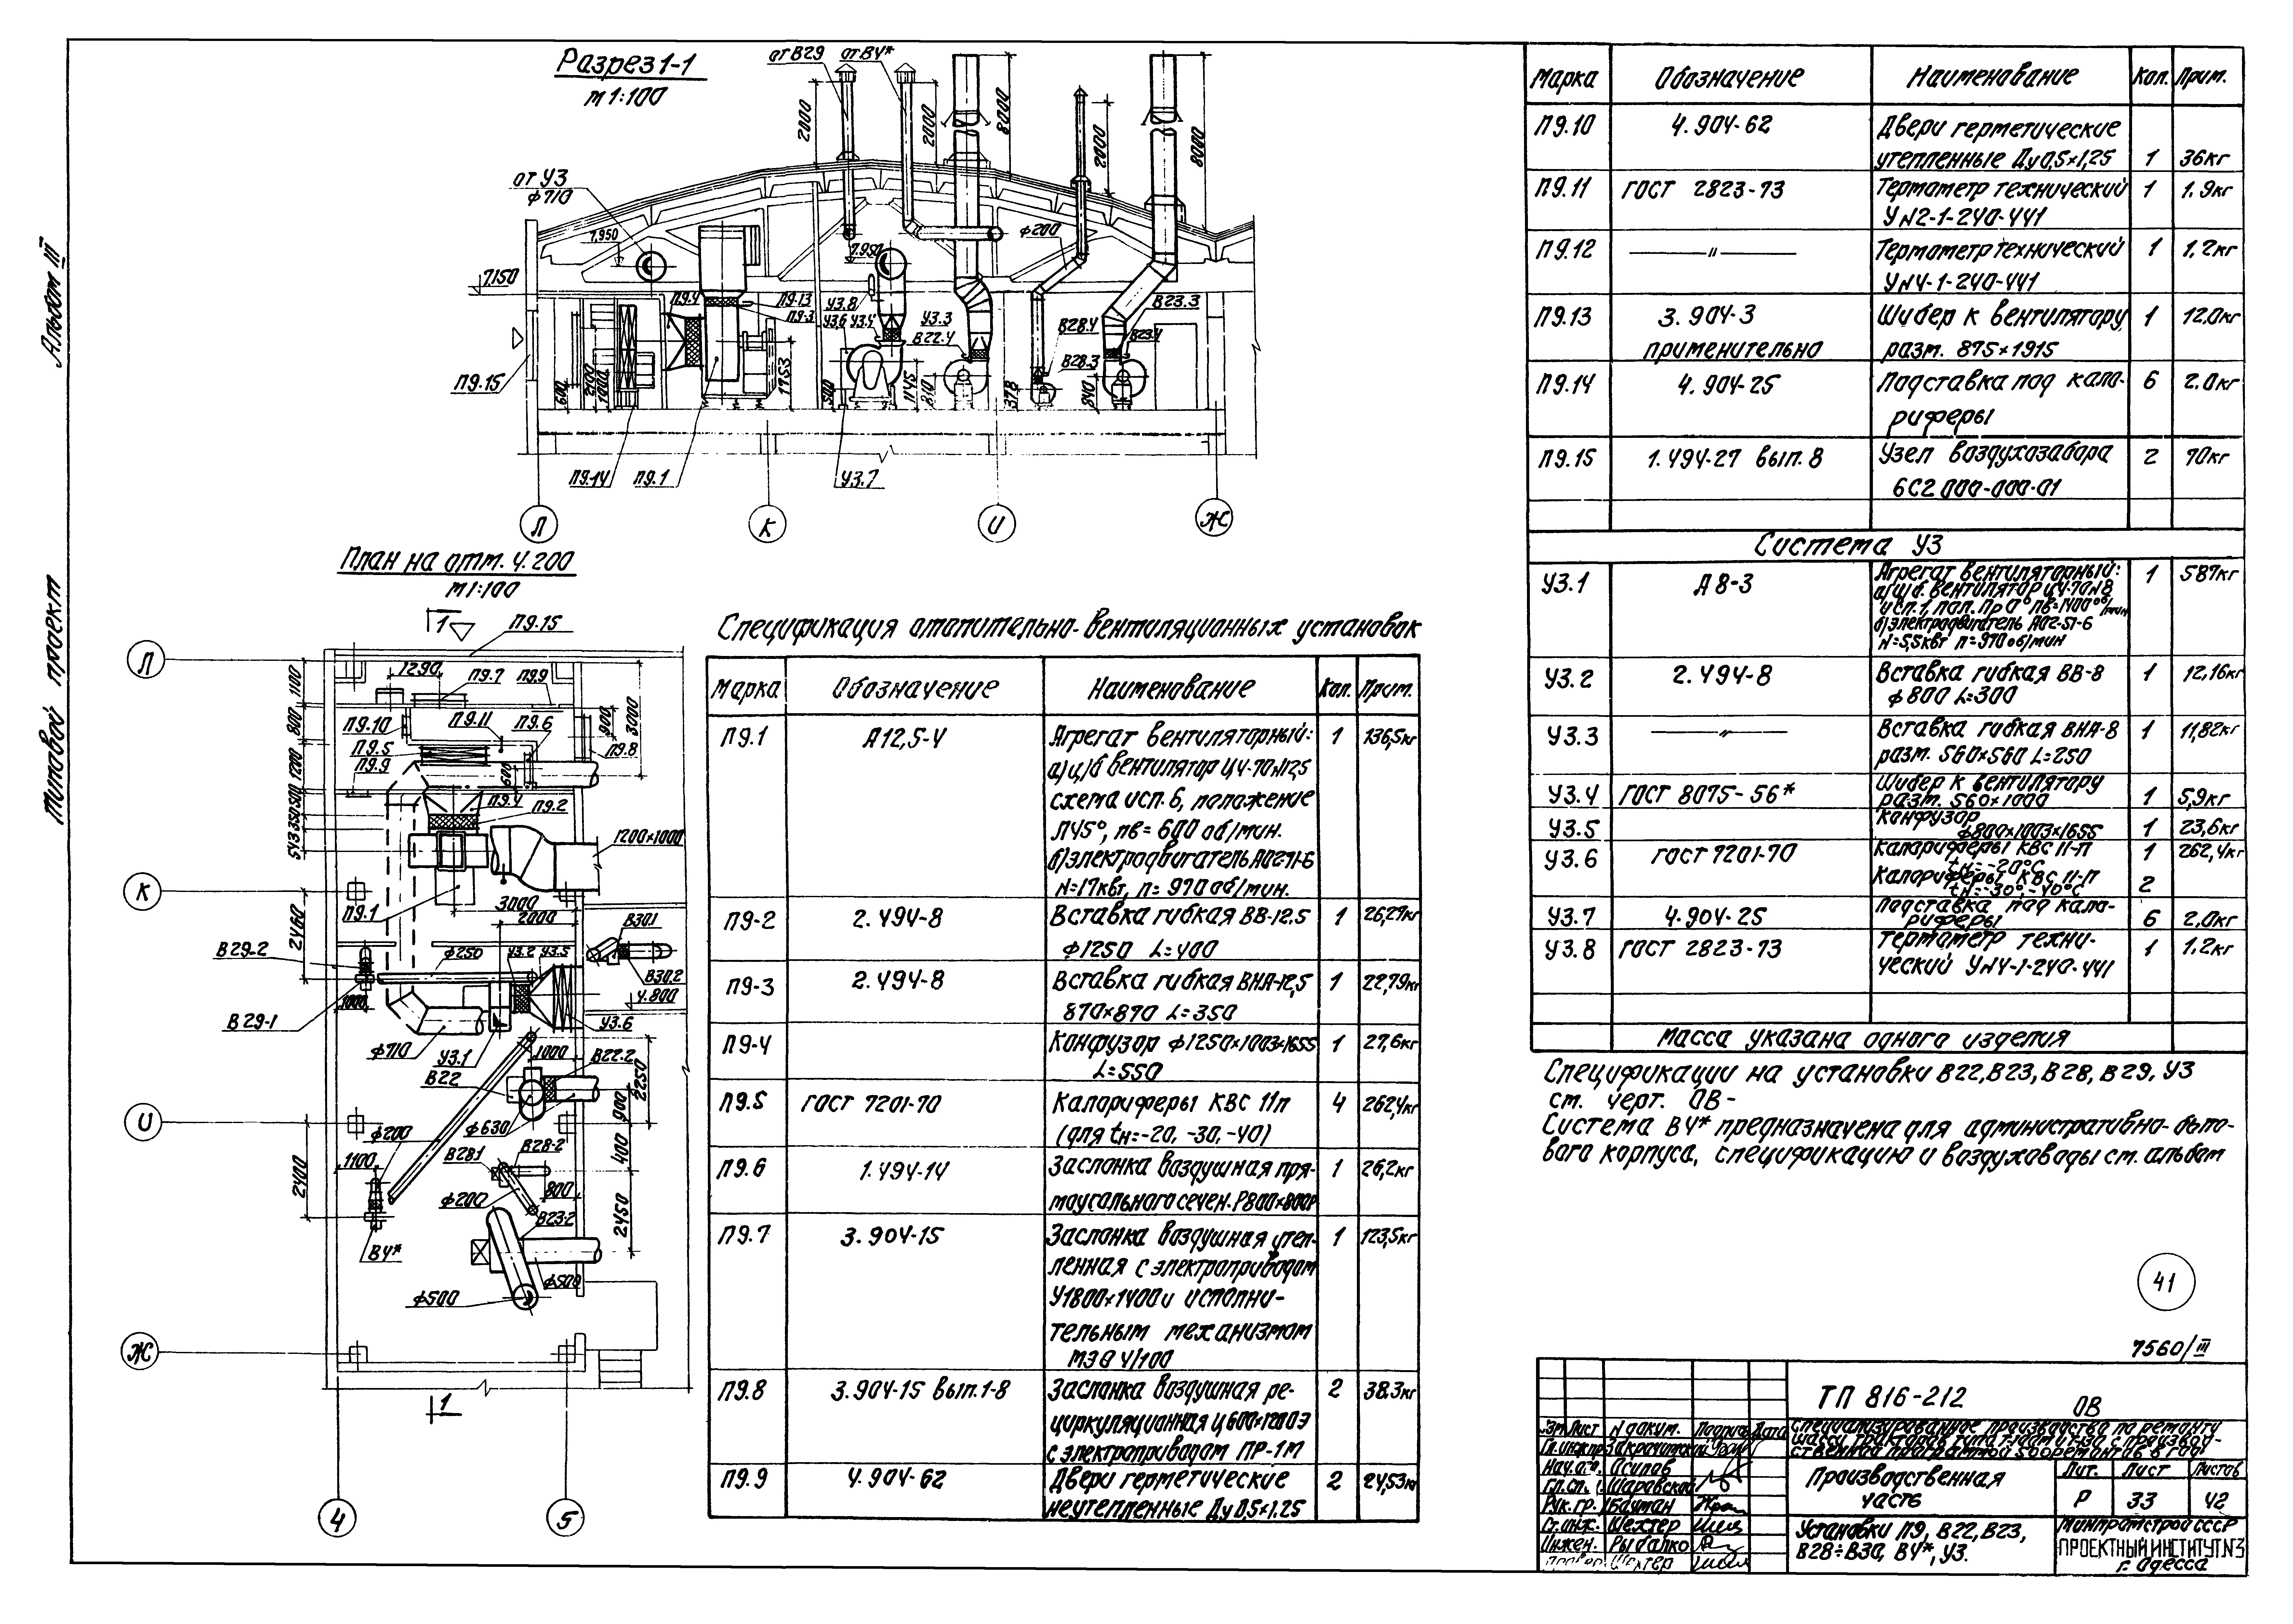 Альбом III
Типовой проект
Разрез 1-1
М 1:100
от В29
от В4*
2000
2000
8000
2000
8000
от У3
ф710
7.950
7.950
7.150
ф200
П9.4
П9.13
П9-3
У3.8
У3.6
У3.4
У3.3
В22.4
В28.4
В28.3
В23.3
В23.4
П9.15
600
1000
1753
500
1145
810
378
840
П9.14
П9.1
У3.7
Л
К
И
Ж
План на отм. 4.200
М 1:100
1
П9.15
Л
1290
1100
П9.7
П9.9
800
П9.10
П9.11
П9.6
900
3000
П9.5
П9.8
П9.9
1200
600
500
П9.4
П9.2
350
543
1200×1000
К
П9.1
3000
2000
2460
В30.1
В29-2
ф250
У3.2
У3.5
В30.2
4.800
1000
В29-1
У3.6
ф710
У3.1
1000
В22.2
В22
2250
900
И
ф200
ф630
В28.1
В28-2
400
1100
2400
ф200
800
В23-2
2450
В4*
ф500
ф500
Ж
1
4
5
Спецификация отопительно-вентиляционных установок
Марка Обозначение Наименование Кол. Прим.
П9.1 А12,5-4 Агрегат вентиляторный: 1 136,5кг
а) ц/б вентилятор Ц4-70 N12,5
схема исп. 6, положение
Л45°, пв= 600 об/мин.
б) электродвигатель АО2-71-6
N=17квт, п= 970 об/мин.
П9-2 2.494-8 Вставка гибкая ВВ-12.5 1 26,27кг
ф1250 L=400
П9-3 2.494-8 Вставка гибкая ВНА-12,5 1 22,79кг
870×870 L=350
П9-4 Конфузор ф1250×1003×1655 1 27,6кг
L=550
П9.5 ГОСТ 7201-70 Калориферы КВС 11п 4 262,4кг
(для tн=-20, -30, -40)
П9.6 1.494-14 Заслонка воздушная пря- 1 26,2кг
моугольного сечен. Р800×800Р
П9.7 3.904-15 Заслонка воздушная утеп- 1 123,5кг
ленная с электроприводом
У1800×1400 и исполни-
тельным механизмом
МЭО 4/100
П9.8 3.904-15 вып.1-8 Заслонка воздушная ре- 2 38.3кг
циркуляционная Ц600×1200Э
с электроприводом ПР-1М
П9.9 4.904-62 Двери герметические 2 24,53кг
неутепленные Ду 0,5×1.25
Марка Обозначение Наименование Кол. Прим.
П9.10 4.904-62 Двери герметические
утепленные Ду 0,5×1,25 1 36кг
П9.11 ГОСТ 2823-73 Термометр технический 1 1.9кг
УN2-1-240-441
П9.12 —〃— Термометр технический 1 1,2кг
УN4-1-240-441
П9.13 3.904-3 Шибер к вентилятору 1 12.0кг
применительно разм. 875×1915
П9.14 4.904-25 Подставка под кало- 6 2.0кг
риферы
П9.15 1.494-27 вып. 8 Узел воздухозабора 2 70кг
6С2 000-000-01
Система У3
У3.1 А 8-3 Агрегат вентиляторный: 1 587кг
а) ц/б. вентилятор Ц4-70 N8
исп.1, пол. Пр 0° пв=1400 об/мин
б) электродвигатель АО2-51-6
N=5,5квт п=970 об/мин
У3.2 2.494-8 Вставка гибкая ВВ-8 1 12,16кг
ф800 L=300
У3.3 —〃— Вставка гибкая ВНА-8 1 11,82кг
разм. 560×560 L=250
У3.4 ГОСТ 8075-56* Шибер к вентилятору
разм. 560×1000 1 5,9кг
У3.5 Конфузор
ф800×1003×1655 1 23,6кг
У3.6 ГОСТ 7201-70 Калориферы КВС 11-П 1 262,4кг
tн=-20°С
Калориферы КВС 11-П 2
tн=-30°,-40°С
У3.7 4.904-25 Подставка под кало- 6 2,0кг
риферы
У3.8 ГОСТ 2823-73 Термометр техни- 1 1.2кг
ческий УN4-1-240-441
Масса указана одного изделия
Спецификации на установки В22, В23, В28, В29, У3
см. черт. ОВ-
Система В4* предназначена для административно-быто-
вого корпуса, спецификацию и воздуховоды см. альбом
41
7560/III
ТП 816-212 ОВ
Изм Лист N докум. Подпись Дата
Нач. Осипов
Рук. гр. Бауман
Ст. инж. Шехтер
Инжен. Рыбалко
Шехтер
Специализированное производство по ремонту
Производственная
часть
Лит. Лист Листов
Р 33 42
Установки П9, В22, В23,
В28÷В30, В4*, У3.
Минпромстрой СССР
ПРОЕКТНЫЙ ИНСТИТУТ N3
г. Одесса